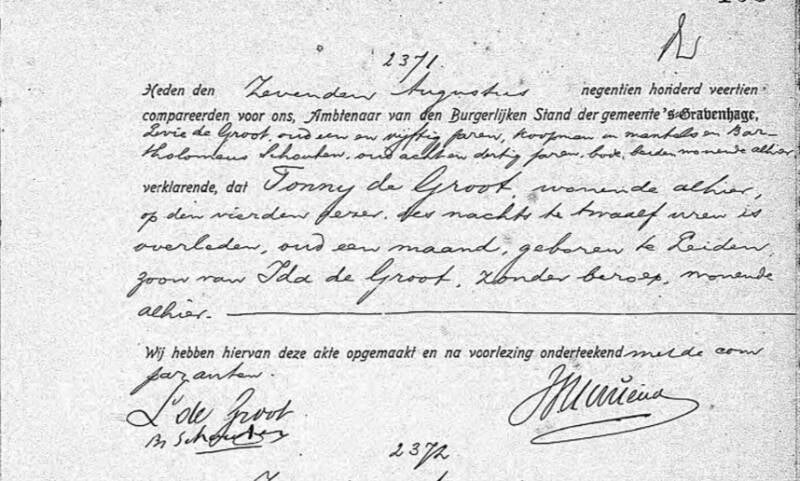 2371.
Heden den Zevenden Augustus negentien honderd veertien
compareerden voor ons, Ambtenaar van den Burgerlijken Stand der gemeente 's-Gravenhage,
Levie de Groot, oud een en vijftig jaren, koopman in mantels en Bar-
tholomeus Schouten, oud acht en dertig jaren, bode, beiden wonende alhier
verklarende, dat Tonny de Groot, wonende alhier,
op den vierden dezer, des nachts te twaalf uren is
overleden, oud een maand, geboren te Leiden,
zoon van Ida de Groot, zonder beroep, wonende
alhier.
Wij hebben hiervan deze akte opgemaakt en na voorlezing onderteekend met de com
paranten.
L de Groot
B Schouten
2372